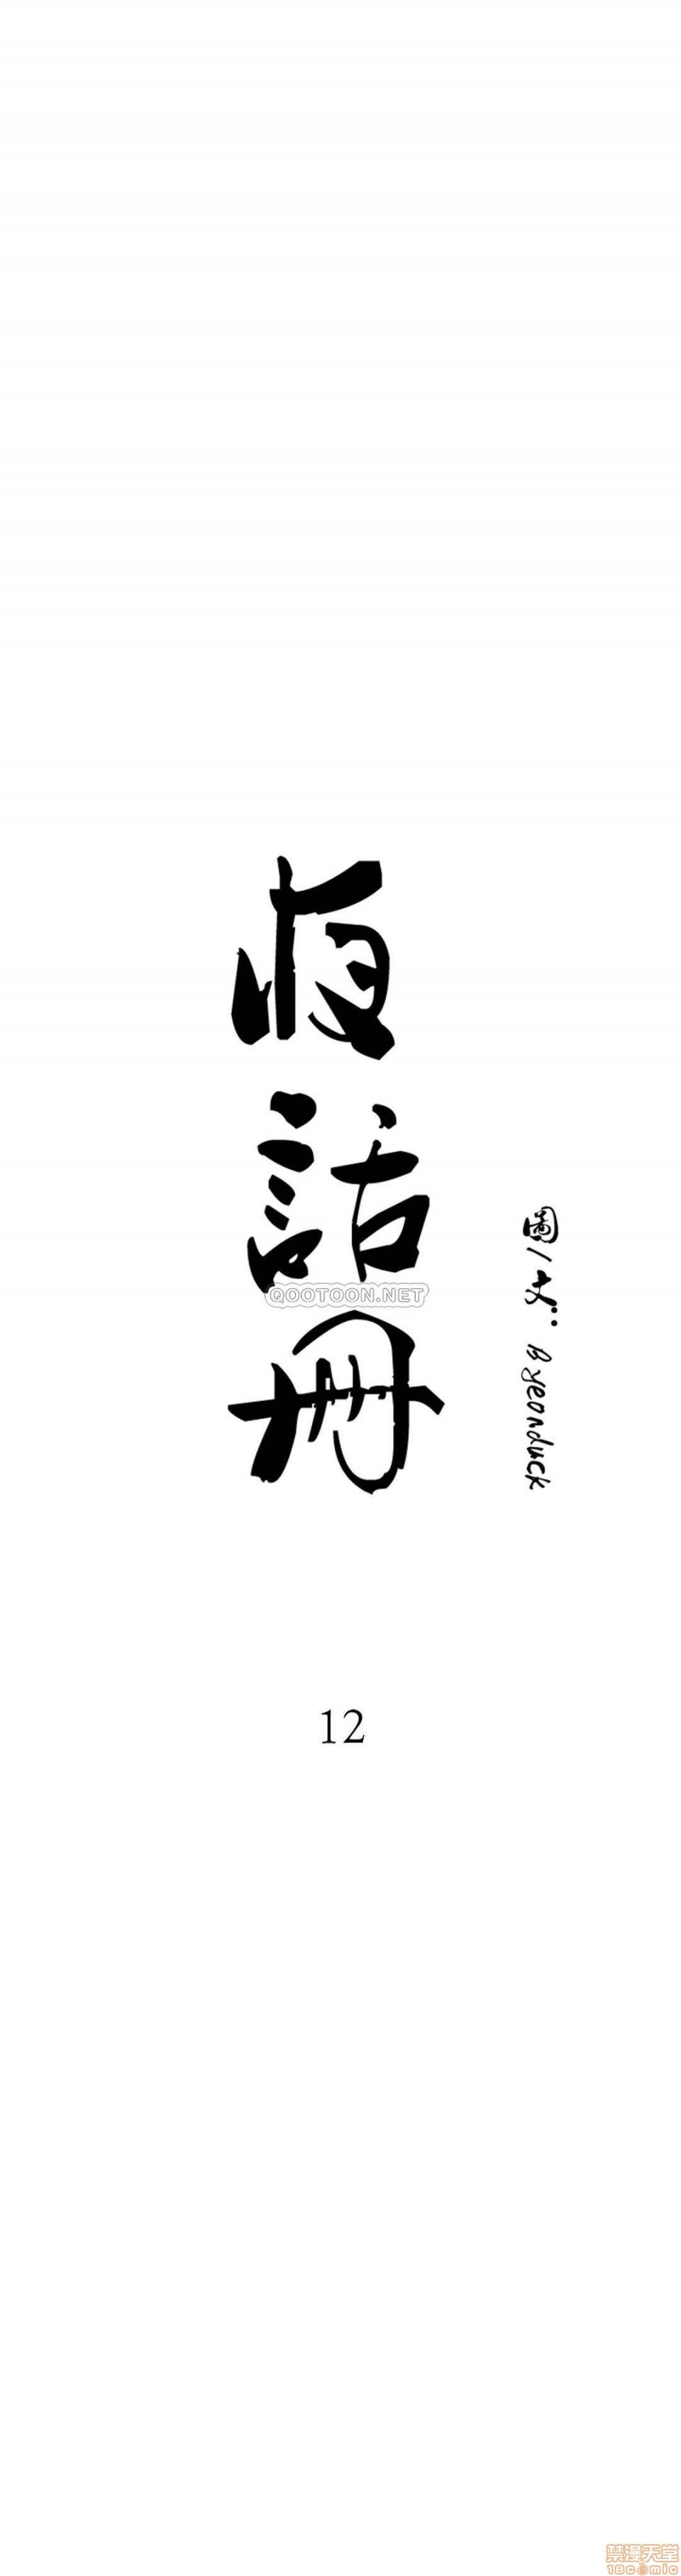 夜話冊
圖/文: Byeonduck
QOOTOON.NET
12
禁漫天堂
18comic